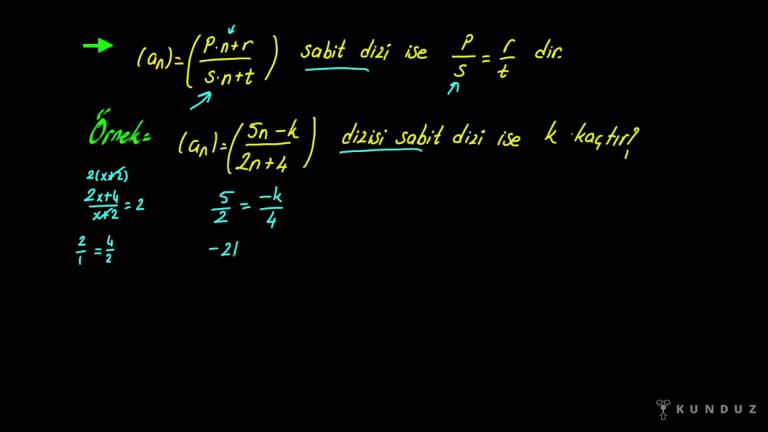 (aₙ) = (p·n+r / s·n+t) sabit dizi ise p/s = r/t dir.
Örnek= (aₙ) = (5n-k / 2n+4) dizisi sabit dizi ise k kaçtır?
2(x+2)
2x+4 / x+2 = 2
5/2 = -k/4
2/1 = 4/2
-2l
KUNDUZ